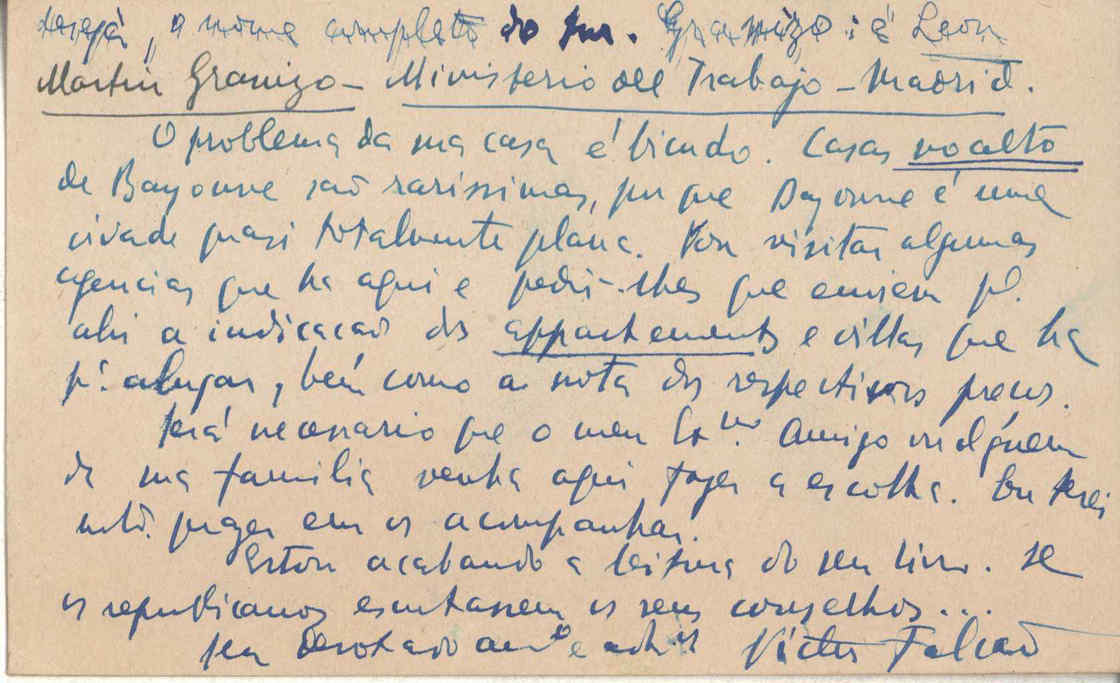 deseja, o nome completo do snr. Granizo: é Leon
Martin Granizo – Ministerio del Trabajo – Madrid.
O problema da sua casa é bicudo. Casas no alto
de Bayonne são rarissimas, porque Bayonne é uma
cidade quasi totalmente plana. Vou visitar algumas
agencias que ha aqui e pedir-lhes que enviem pª.
ahi a indicacão dos appartements e villas que ha
pª alugar, bem como a nota dos respectivos precos.
Será necessario que o meu Exmo. Amigo ou alguem
da sua familia venha aqui fazer a escolha. Eu terei
mtº. prazer em os acompanhar.
Estou acabando a leitura do seu livro. Se
os republicanos escutassem os seus conselhos...
Seu devotado amº e Victor Falcão